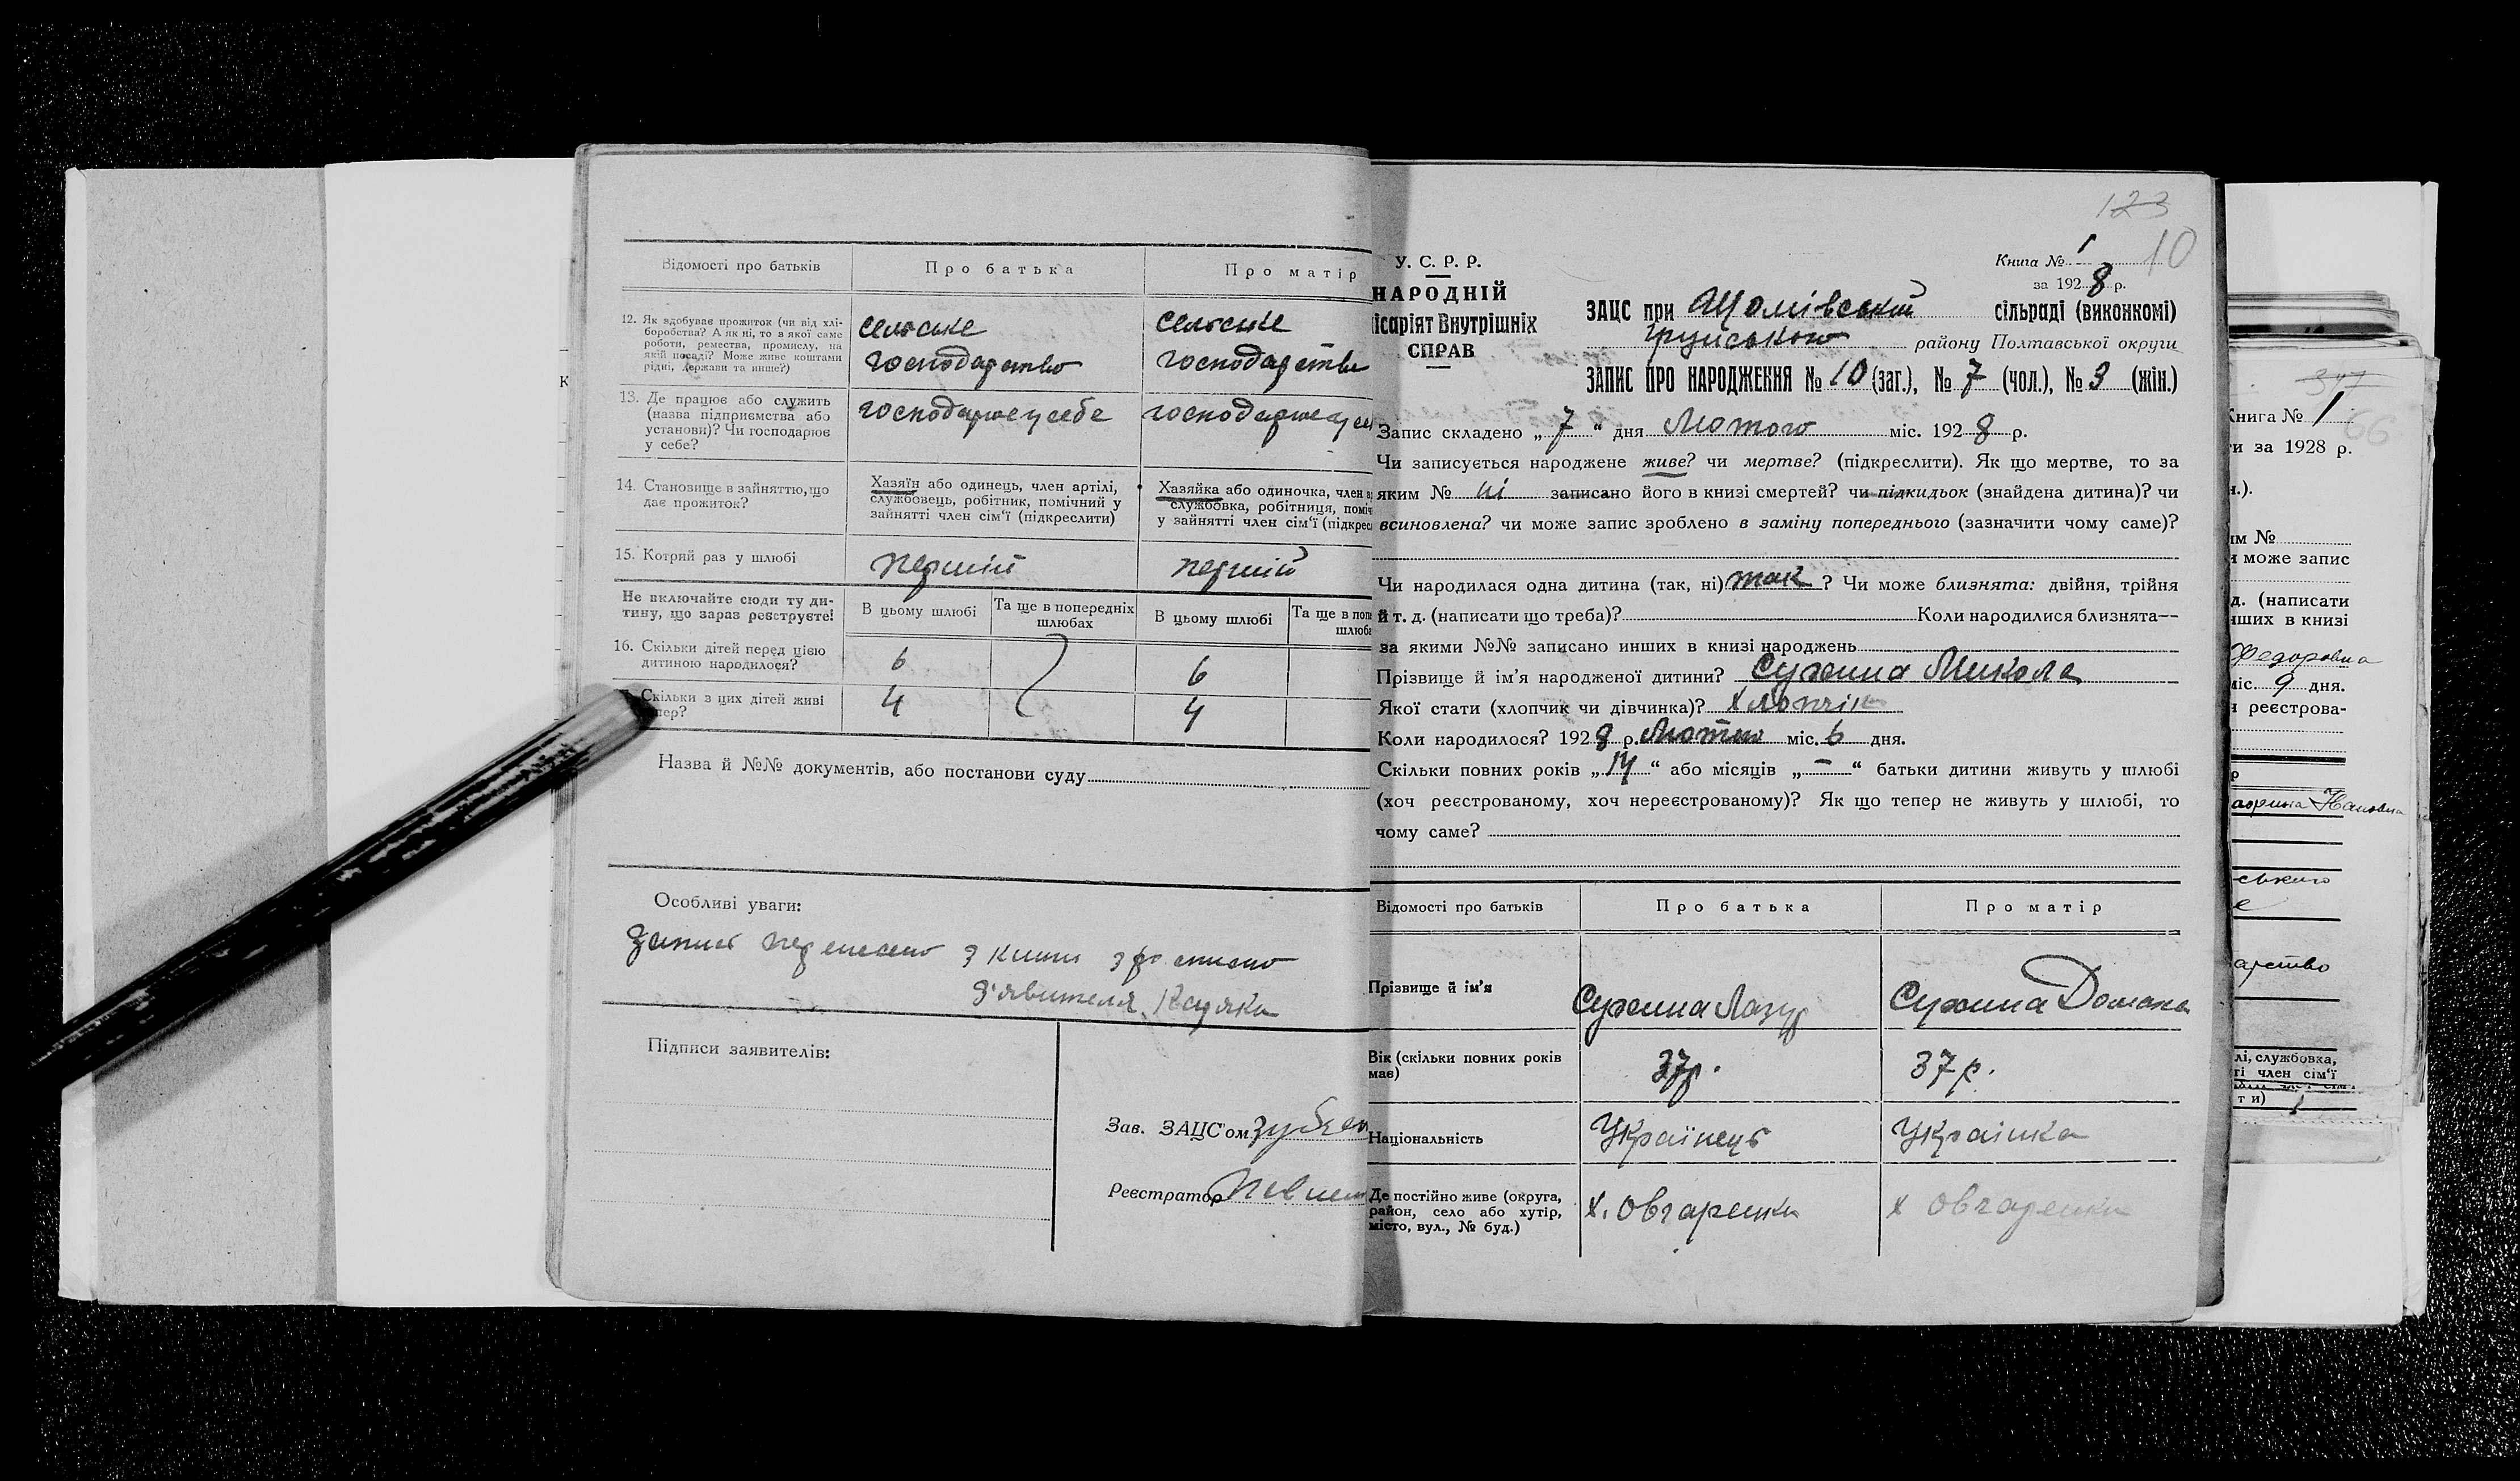 Відомості про батьків
Про батька
Про матір
12. Як здобуває прожиток (чи від хлі-
боробства? А як ні, то з якої саме
роботи, ремества, промислу, на
якій посаді? Може живе коштами
рідні, держави та инше?)
сельське
господарство
сельське
господарство
13. Де працює або служить
(назва підприємства або
установи)? Чи господарює
у себе?
господарює у себе
господарює у се
14. Становище в зайняттю, що
дає прожиток?
Хазяїн або одинець, член артілі,
службовець, робітник, помічний у
зайнятті член сім'ї (підкреслити)
Хазяйка або одиночка, член а
службовка, робітниця, поміч
у зайнятті член сім'ї (підкрес
15. Котрий раз у шлюбі
первий
первий
Не включайте сюди ту ди-
тину, що зараз реєструєте!
В цьому шлюбі
Та ще в попередніх
шлюбах
В цьому шлюбі
Та ще в поп
шлюба
16. Скільки дітей перед цією
дитиною народилося?
6
6
Скільки з цих дітей живі
тепер?
4
4
Назва й №№ документів, або постанови суду
Особливі уваги:
Запис перенесено з книги
з'явителя
Підписи заявителів:
Зав. ЗАЦС'ом
Реєстратор
123
10
У. С. Р. Р.
НАРОДНІЙ
ісаріят Внутрішніх
СПРАВ
Книга № 1
за 1928 р.
ЗАЦС при сільраді (виконкомі)
району Полтавської округи
ЗАПИС ПРО НАРОДЖЕННЯ № 10 (заг.), № 7 (чол.), № 3 (жін.)
Запис складено „7“ дня Лютого міс. 1928 р.
Чи записується народжене живе? чи мертве? (підкреслити). Як що мертве, то за
яким № ні записано його в книзі смертей? чи підкидьок (знайдена дитина)? чи
всиновлена? чи може запис зроблено в заміну попереднього (зазначити чому саме)?
Чи народилася одна дитина (так, ні) так? Чи може близнята: двійня, трійня
й т. д. (написати що треба)? Коли народилися близнята—
за якими №№ записано инших в книзі народжень
Прізвище й ім'я народженої дитини? Сухина Микола
Якої стати (хлопчик чи дівчинка)? Хлопчік
Коли народилося? 1928 р. Лютого міс. 6 дня.
Скільки повних років „14“ або місяців „—“ батьки дитини живуть у шлюбі
(хоч реєстрованому, хоч нереєстрованому)? Як що тепер не живуть у шлюбі, то
чому саме?
Відомості про батьків
Про батька
Про матір
Прізвище й ім'я
Сухина Лазур
Сухина Домаха
Вік (скільки повних років
має)
37р.
37р.
Національність
Українець
Українка
Де постійно живе (округа,
район, село або хутір,
місто, вул., № буд.)
х. Овчаренки
х Овчаренки
347
Книга № 1
66
и за 1928 р.
н.).
им №
и може запис
д. (написати
нших в книзі
Федоровна
міс. 9 дня.
я реєстрова-
ського
лі, службовка,
ті член сім'ї
ти)